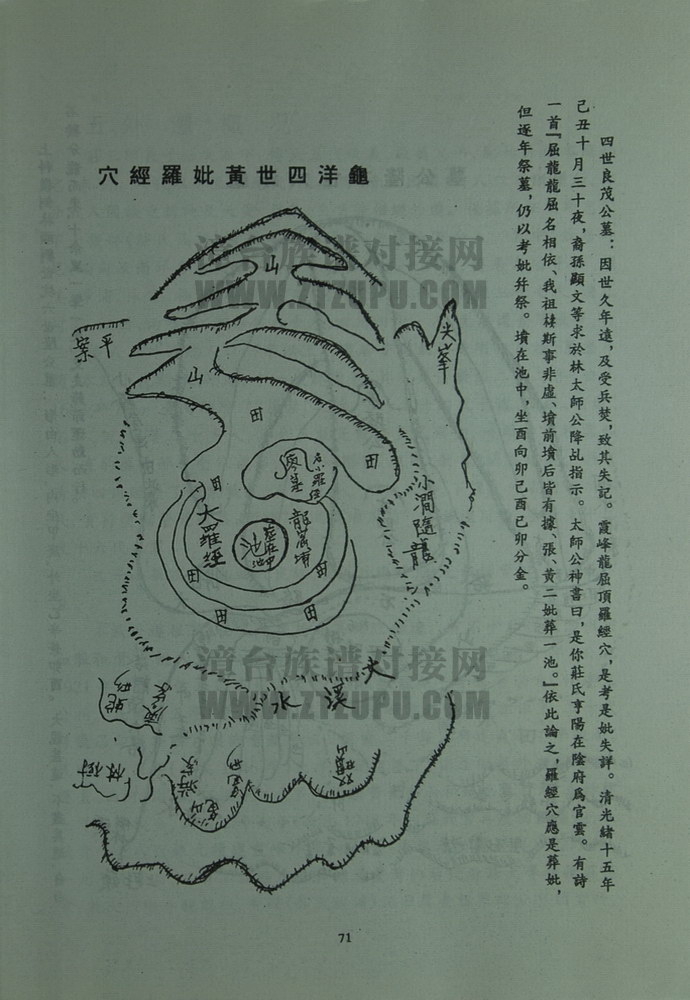 四世良茂公墓：因世久年遠，及受兵焚，致其失記。霞峰龍屈頂羅經穴，是考是妣失詳。清光緒十五年
己丑十月三十夜，裔孫顯文等求於林太師公降乩指示。太師公神書曰，是你莊氏亨陽在陰府爲官雲。有詩
一首『屈龍龍屈名相依、我祖棲斯事非虛、墳前墳后皆有據、張、黃二妣葬一池。』依此論之，羅經穴應是葬妣，
但逐年祭墓，仍以考妣并祭。墳在池中，坐酉向卯己酉己卯分金。
穴經羅妣黃世四洋龜
漳台族谱对接网
WWW.ZTZUPU.COM
山
尖峯
平
山
田
田
田
小澗隨龍
大羅經
池
田
田
田
田
漳台族谱对接网
WWW.ZTZUPU.COM
大溪水
71